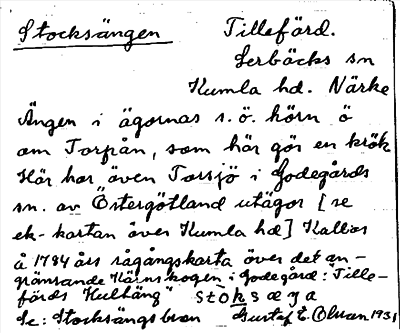 Stocksängen Tillefärd.
Lerbäcks sn
Kumla hd. Närke
Ängen i ägornas s.ö. hörn ö
om Torpån, som här gör en krök
Här har även Torsjö i Godegårds
sn. av Östergötland utägor [se
ek-kartan över Kumla hd] Kallas
å 1784 års rågångskarta över det an-
gränsande Kärnskogen i Godegård: "Tille-
färds Kultäng" stoksæŋa
Se: Stocksängsbron Gustaf E. Olsson 1931